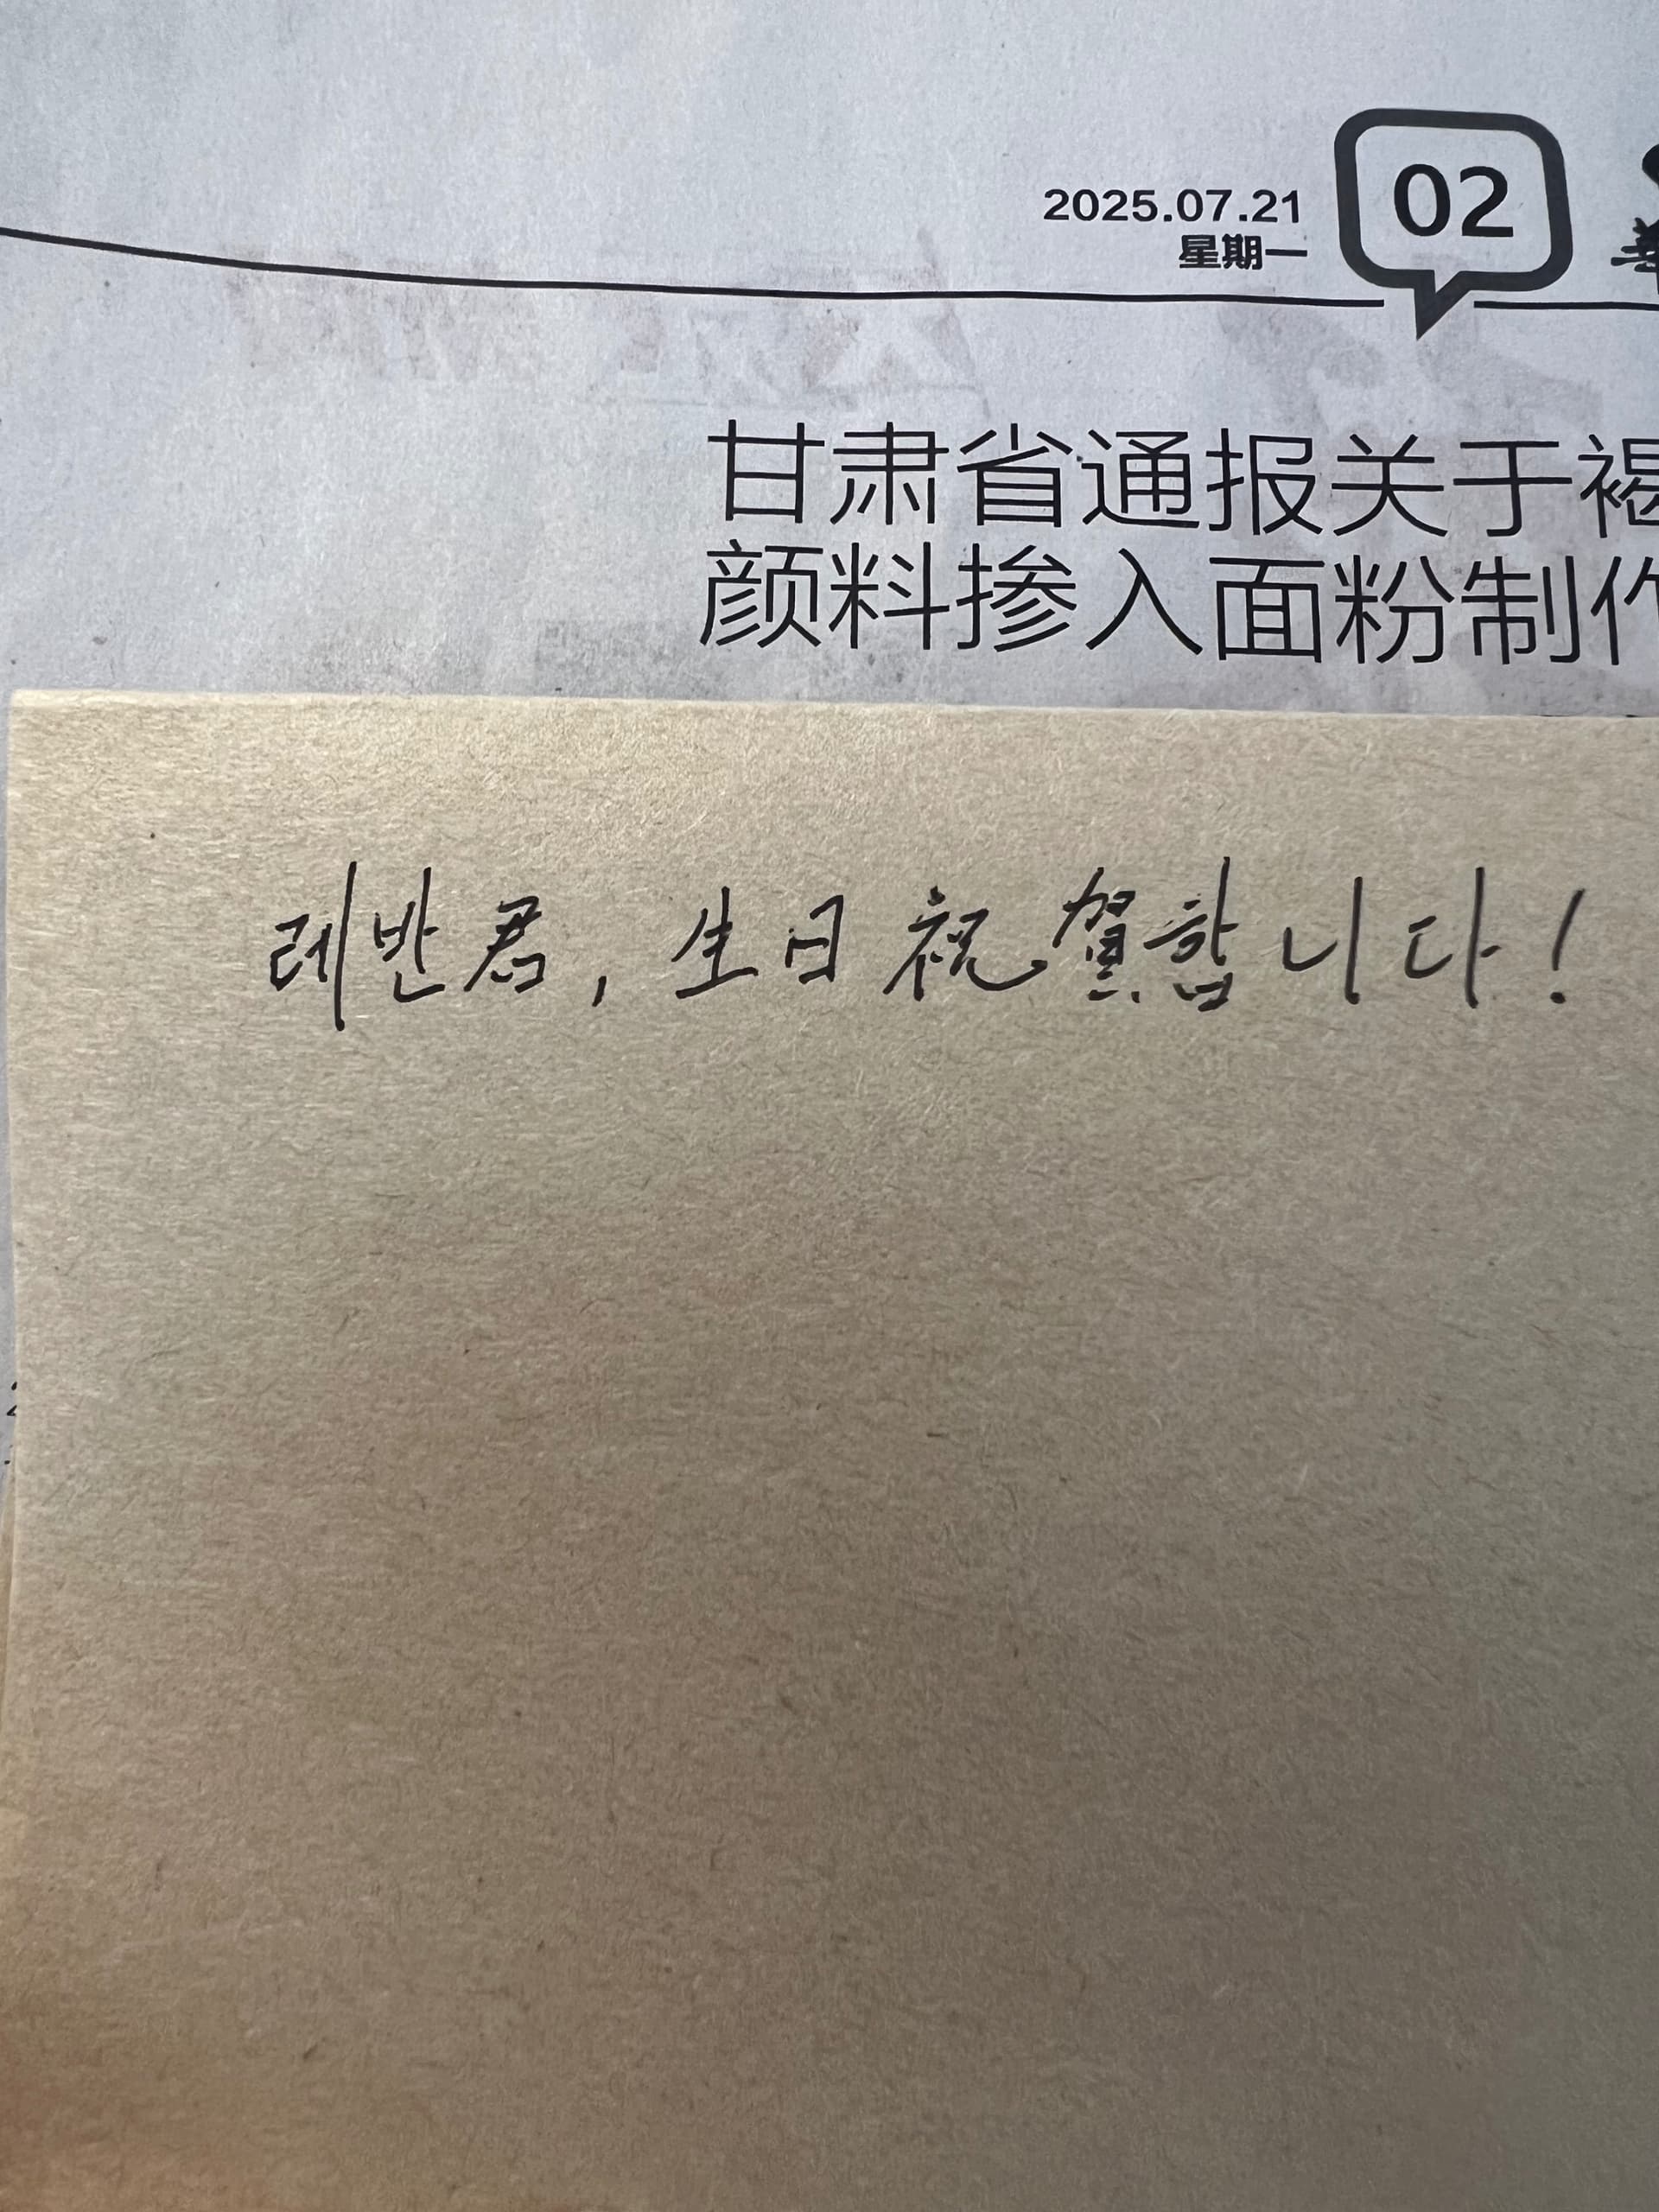 2025.07.21
星期一
02
甘肃省通报关于褐
颜料掺入面粉制作
레반君, 生日祝賀합니다!